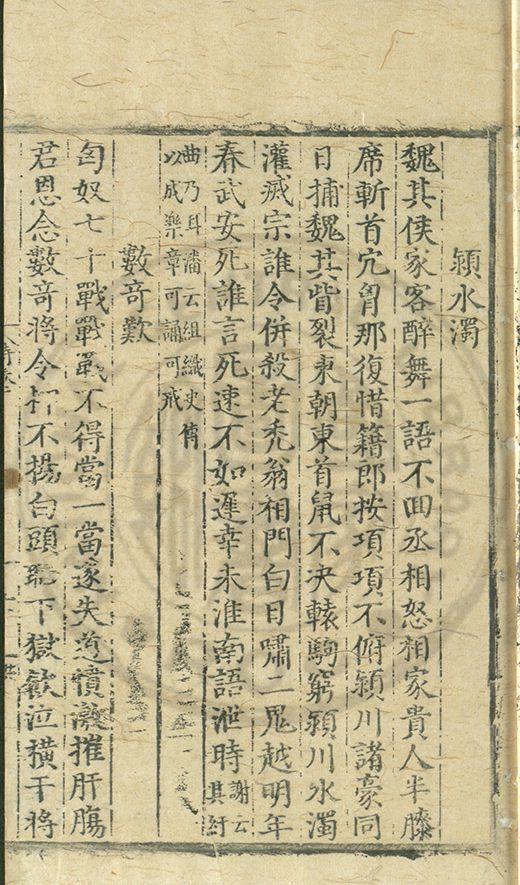 頴水濁
魏其侯家客醉舞一語不回丞相怒相家貴人半膝
席斬首穴胷那復惜籍郎按項項不俯頴川諸豪同
日捕魏其眥裂東朝東首鼠不决轅駒窮頴川水濁
灌宗誰令併殺老禿翁相門白日嘯二鬼越明年
春武安死誰言死速不如遲幸未淮南語泄時謝云其紆
曲乃耳潘云組織史傳
以成樂章可誦可戒
數奇歎
匈奴七十戰戰戰不得當一當遂失道憤激摧肝腸
君恩念數奇將令 不揚白頭 下獄歛泣橫干將